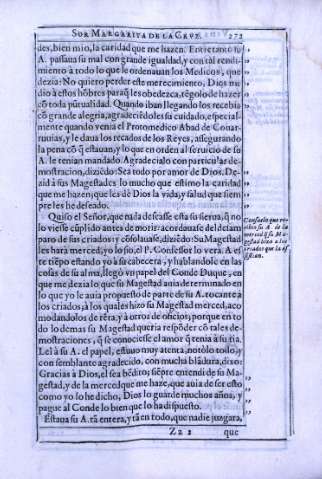 SOR MARGARITA DE LA CRVZ. 272
des, bien mio, la caridad que me hazen. Entretanto su
A. passaua su mal con grande igualdad, y con tal rendi-
miento à todo lo que le ordenauan los Medicos, que
dezia: No quiero perder este merecimiento, Dios me
dio à estos hõbres paraq̃ les obedezca, rẽgolo de hazer cõ
toda pũtualidad. Quando iban llegando los recebia
cõ grande alegria, agradeciẽdoles su cuidado, especial-
mente quando venia el Protomedico Abad de Couar-
ruuias, y le daua los recados de los Reyes, assegurando
la pena cõ q̃ estauan, y lo que en orden al seruicio de su
A. le tenian mandado. Agradecialo con particular de-
mostracion, diziẽdo: Sea todo por amor de Dios. De-
zid à sus Magestades lo mucho que estimo la caridad
que me hazen; que les dè Dios la vida, y salud que siem-
pre les he deseado.
Quiso el Señor, que nada desease esta su sierua, q̃ no
lo viesse cũplido antes de morir: acordauase del desam
paro de sus criados, y cõsolauase, diziẽdo: Su Magestad
les harà merced, yo lo fio, el P. Confessor lo vera. A este
tiẽpo estando yo à su cabecera, y hablandole en las
cosas de su alma, llegò vn papel del Conde Duque, en
que me dezia lo que su Magestad auia determinado en
lo que yo le auia propuesto de parte de su A. tocante à
los criados, à los quales hizo su Magestad merced, aco
modandolos de rẽta, y à otros de oficios; porque en to
do lo demas su Magestad queria respõder cõ tales de-
mostraciones, q̃ se conociesse el amor q̃ tenia à su tia.
Leì à su A. el papel, estuuo muy atenta, notòlo todo, y
con semblante agradecido, con mucha blãdura, dixo:
Gracias à Dios, el sea bẽdito; siẽpre entendi de su Ma-
gestad, y de la merced que me haze, que auia de ser esto
como yo lo he dicho, Dios lo guarde muchos años, y
pague al Conde lo bien que lo ha dispuesto.
Estaua su A. tã entera, y tã en todo, que nadie juzgara,
Zz 2 que
Consuelo que re-
cibio su A. de la
merced q̃ su Ma
gestad hizo a los
criados que la as-
sistian.